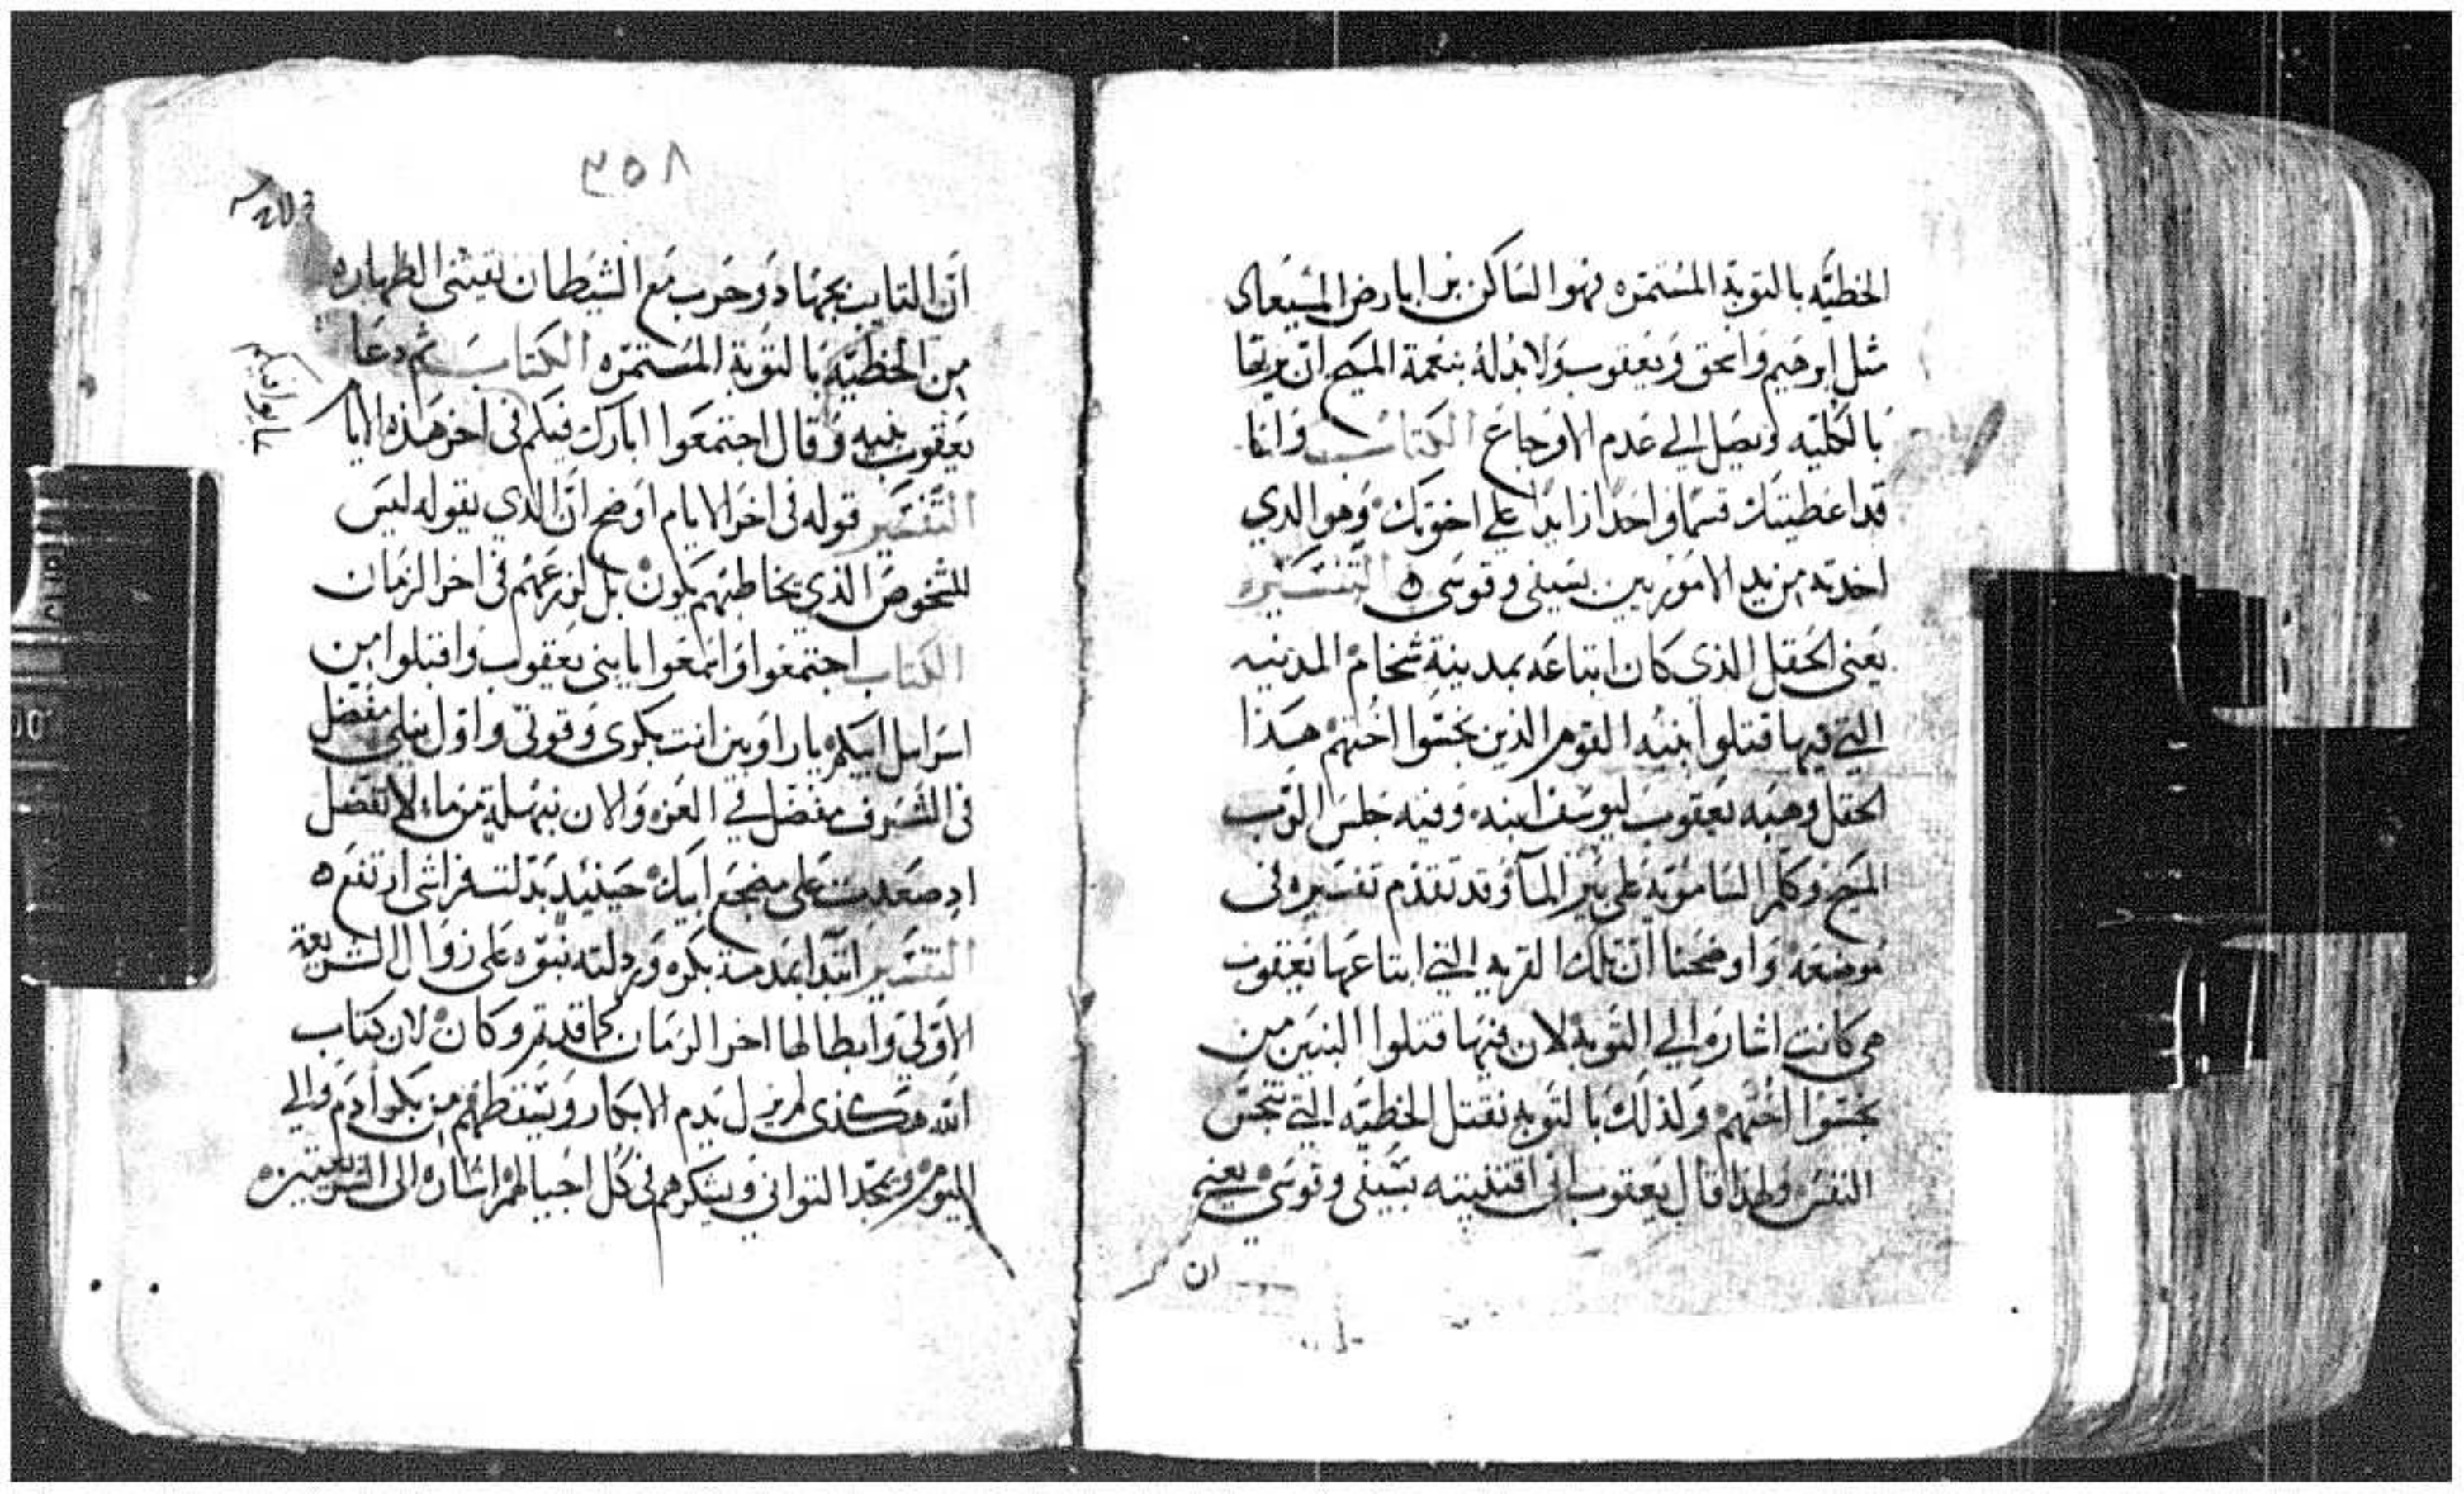 الخطيه بالتوبة المستمره فهو الساكن في ارض الميعاد
مثل ابرهيم واسحق ويعقوب ولا بد له بنعمة المسيح ان يرثها
بالكليه ويصل الي عدم الاوجاع الكتاب وانا
قد اعطيتك قسما واحدا زايدا علي اخوتك وهو الدي
اخدته من يد الاموريين بسيفي وقوسي ه التفسير ه
يعني الحقل الذي كان ابتاعه بمدينة شخام المدينه
التي فيها قتلوا بنيه القوم الذين نجسوا اختهم هذا
الحقل وهبه يعقوب ليوسف ابنه وفيه جلس الرب
المسيح وكلم السامرية علي بير الما وقد تقدم تفسيره في
موضعه واوضحنا ان تلك القريه التي ابتاعها يعقوب
هي كانت اشاره الي التوبة لان فيها قتلوا البنين من
نجسوا اختهم ولذلك بالتوبه نقتل الخطيه التي تنجس
النفس ولهذا قال يعقوب اني اقتنيته بسيفي وقوسي يعني
ان
٣٥٨
ان التايب بجهاد وحرب مع الشيطان يقتني الطهاره
من الخطيه بالتوبة المستمره الكتاب ثم دعا
يعقوب بنيه وقال اجتمعوا ابارك فيكم في اخر هذه الايا
التفسير قوله في اخر الايام اوضح ان الذي يقوله ليس
للشخوص الذي يخاطبهم يكون بل لزرعهم في اخر الزمان
الكتاب اجتمعوا واسمعوا يا بني يعقوب واقبلوا من
اسرايل ابيكم يا راوبين انت بكري وقوتي واول بني مفضل
في الشرف مفضل في العزه والان نهملة من ماء لا تفضل
اد صعدت على مضجع ابيك حينيد بدلت فراشي ارتفع ه
التفسير ابتدا بمدمة بكره وردلته نبوه على زوال الشريعة
الاولي وابطالها اخر الزمان كما قد تم وكان لان كتاب
الله هكذى لم يزل يدم الابكار ويسقطهم من بكر ادم والي
اليوم ويمجد التواني ويشكرهم في كل اجيالهم اشاره الى الشريعتين ه